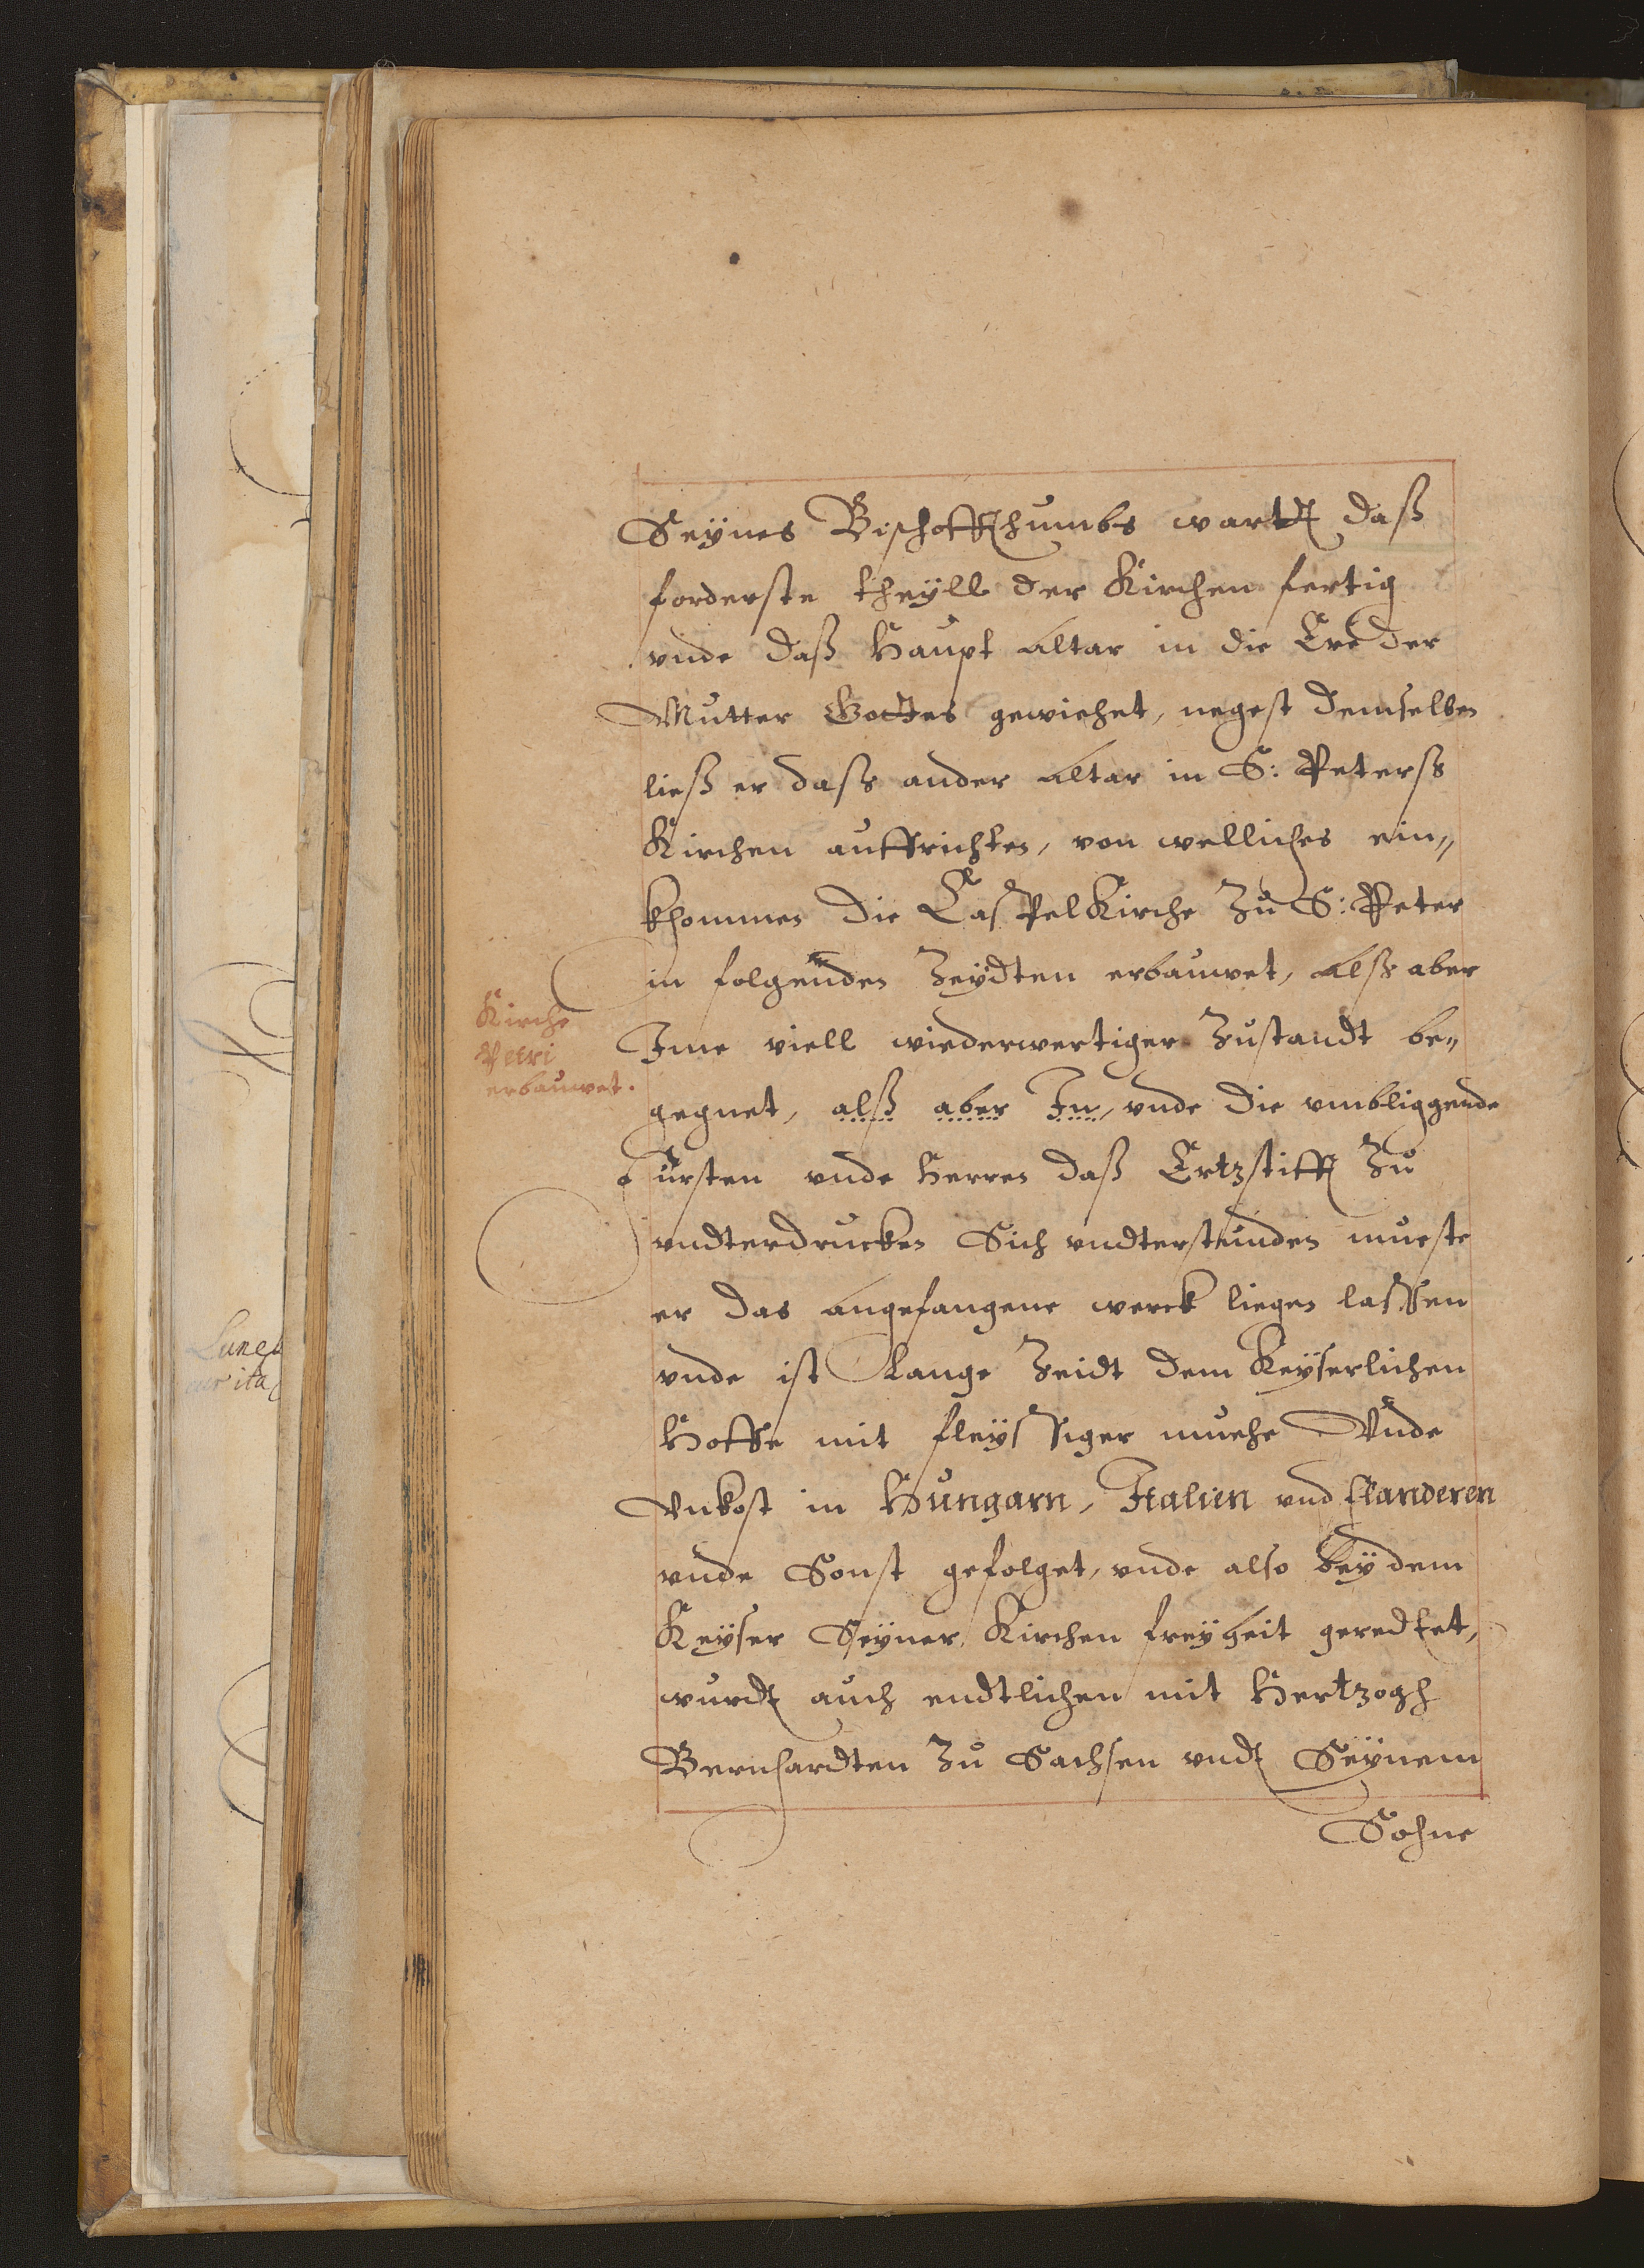 Seÿnes Bischoffthumbs wardt daß
forderste theÿll der Kirchen fertig
vnde daß Haupt Altar in die Ere der
Mutter Gottes gewiehet, negest demselben
ließ er dasß ander Altar in S: Petersß
Kirchen auffrichten, von welliches ein„
khommen die CasPelKirche Zu S: Peter
in folgenden Zeÿdten erbauwet, Alß aber
Kirche
Petri
erbauwet.
Ime viell wiederwertiger Zustandt be„
gegnet, alß aber In, vnde die vmbliggende
fürsten vnde Herren daß Ertzstifft Zu
vndterdrucken Sich vndterstunden mueste
er das Angefangene werck liegen lassen
vnde ist Lange Zeidt dem Keÿserlichen
Hoffe mit fleÿssiger muehe Vnde
Vnkost in Hungarn, Italien vnd flanderen
vnde Sonst gefolget, vnde also beÿ dem
Keÿser Seÿner Kirchen freÿheit geredtet,
wurdt auch endtlichen mit Hertzogh
Bernhardten Zu Sachsen vndt Seÿnem
Sohne
Luneb
cur ita